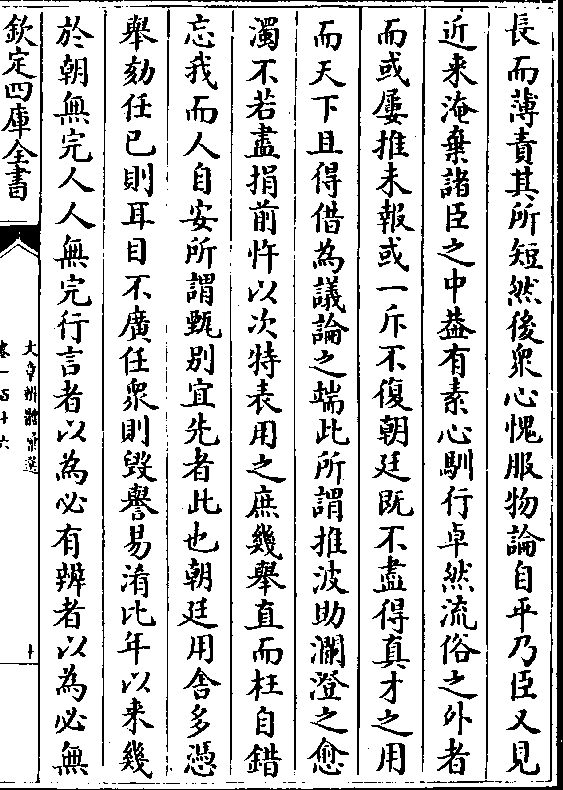 長而薄責其所短然後衆心愧服物論自平乃臣又見
近来淹棄諸臣之中葢有素心馴行卓然流俗之外者
而或屢推未報或一斥不復朝廷既不盡得真才之用
而天下且得借為議論之端此所謂推波助瀾澄之愈
濁不若盡捐前忤以次特表用之庶幾舉直而枉自錯
忘我而人自安所謂甄别宜先者此也朝廷用舍多憑
舉劾任已則耳目不廣任衆則毁譽易淆比年以来幾
於朝無完人人無完行言者以為必有辨者以為必無
欽定四庫全書
文章辨體彚選
卷一百十六
十